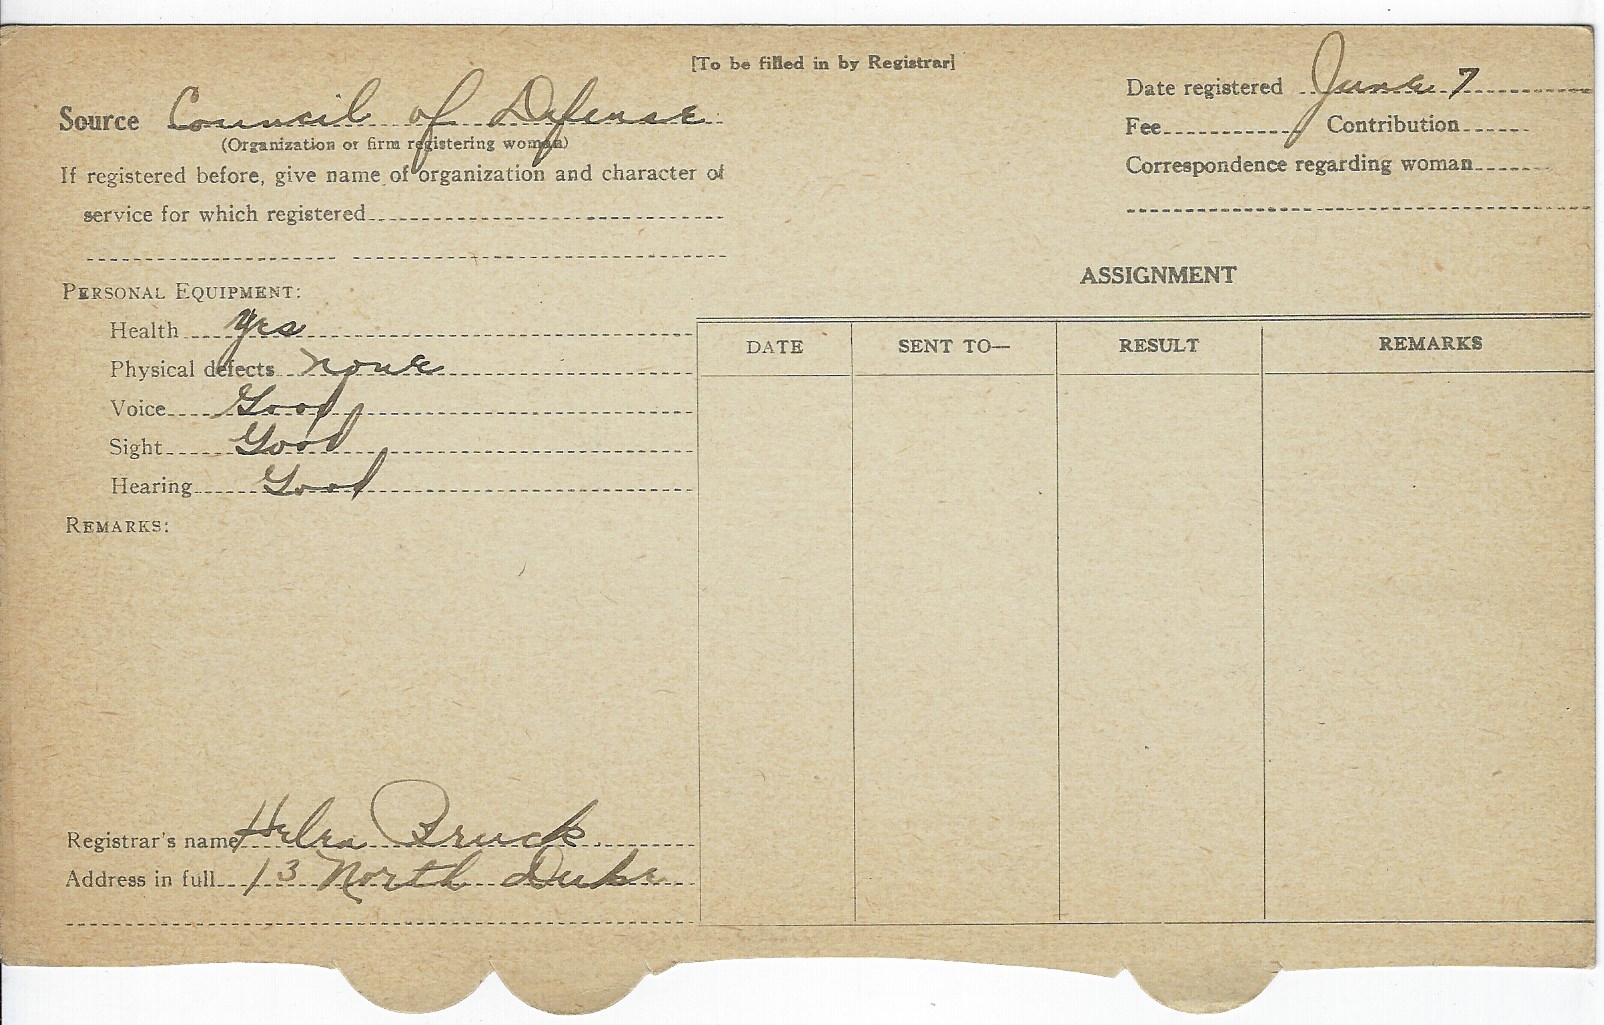 [To be filled in by Registrar]
Source Council of Defense
(Organization or firm registering woman)
If registered before, give name of organization and character of
service for which registered
Date registered June 7
Fee Contribution
Correspondence regarding woman
PERSONAL EQUIPMENT:
Health yes
Physical defects none
Voice Good
Sight Good
Hearing Good
REMARKS:
Registrar's name Helen Bruck
Address in full 13 North Duke
ASSIGNMENT
DATE SENT TO— RESULT REMARKS